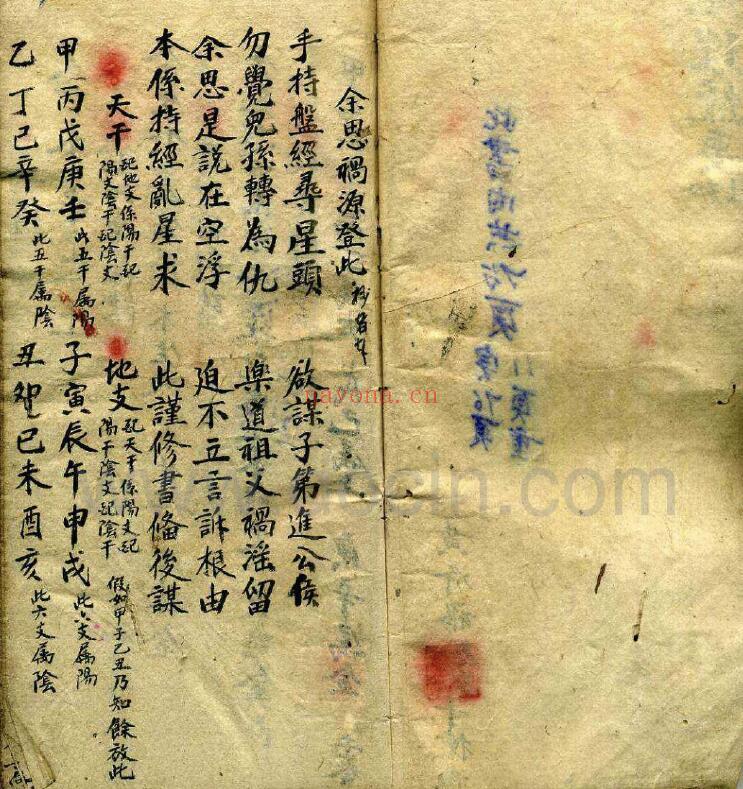 余思禍源登此
手持盤經尋星頭 欲謀子第進公侯
勿覺兒孫轉為仇 樂道祖父禍滛留
余思是說在空浮 迫不立言訴根由
本係持經亂星求 此謹修書俻後謀
天干 配地支係陽干配陽支陰干配陰支 地支 配天干係陽支配陽干陰支配陰干 假如甲子乙丑乃知餘放此
甲丙戊庚壬 此五干属陽 子寅辰午申戌 此六支属陽
乙丁己辛癸 此五干属陰 丑卯巳未酉亥 此六支属陰
nayona.cn